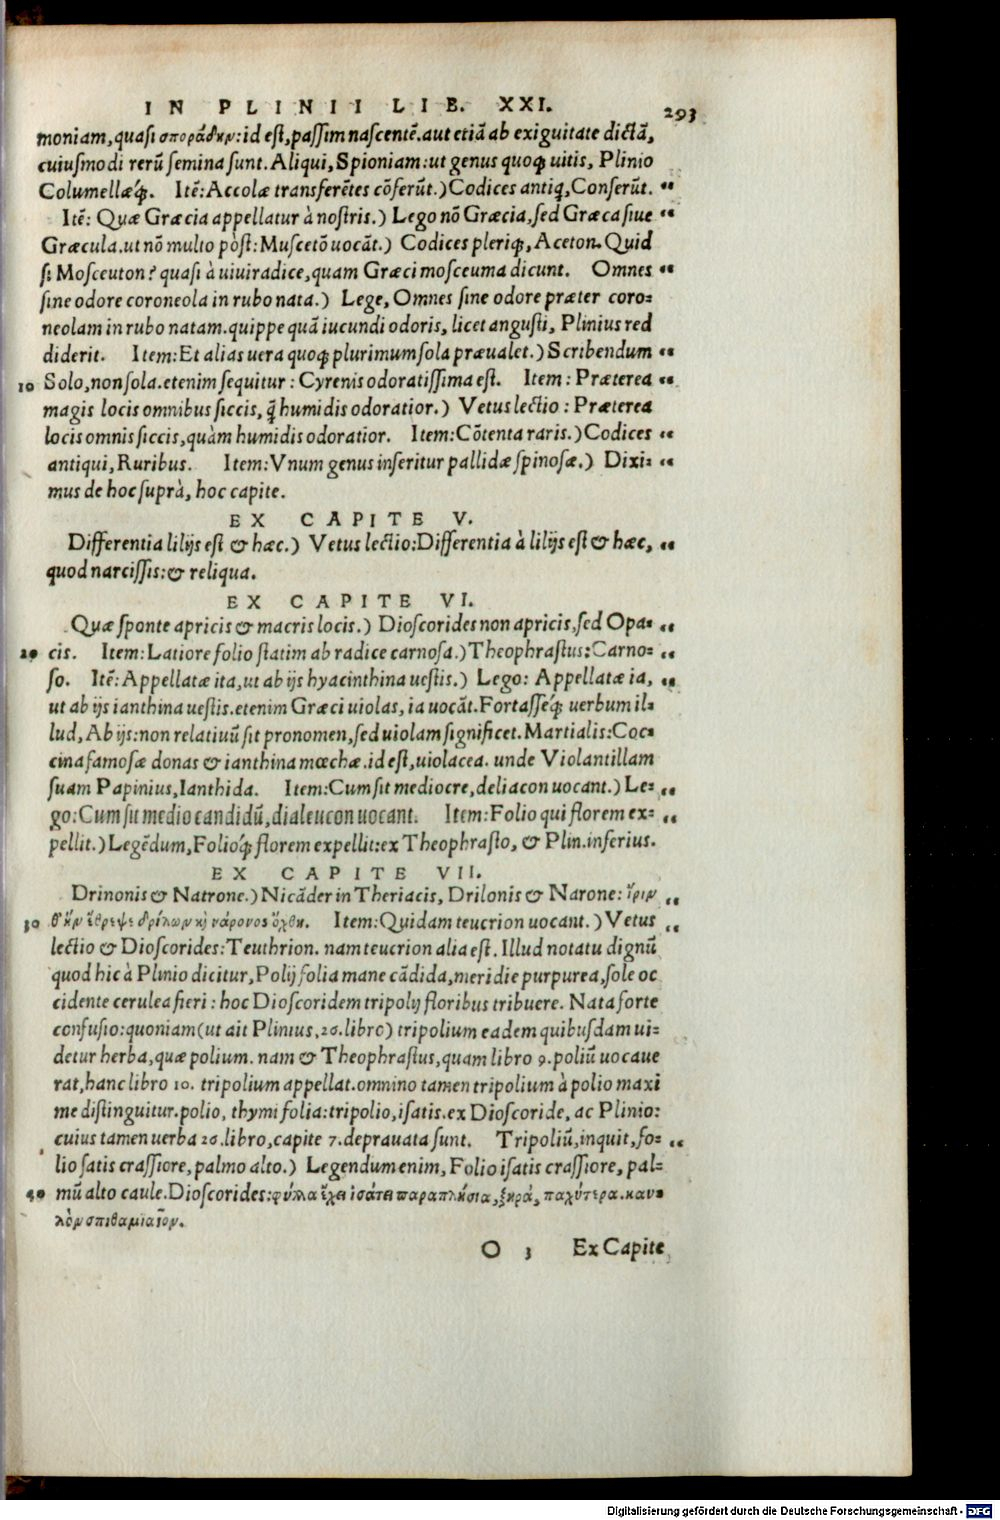 IN PLINII LIB. XXI. 293
moniam, quasi σποράδην: id est, passim nascentē. aut etiā ab exiguitate dictā,
cuiusmodi rerū semina sunt. Aliqui, Spioniam: ut genus quoq; uitis, Plinio
Columellæq́;. Itē: Accolæ transferētes cōferūt.) Codices antiq, Conserūt. “
Itē: Quæ Græcia appellatur à nostris.) Lego nō Græcia, sed Græca siue “
Græcula. ut nō multo pòst: Muscetō uocāt.) Codices pleriq;, Aceton. Quid
si Mosceuton? quasi à uiuiradice, quam Græci mosceuma dicunt. Omnes “
sine odore coroneola in rubo nata.) Lege, Omnes sine odore præter coro=
neolam in rubo natam. quippe quā iucundi odoris, licet angusti, Plinius red
diderit. Item: Et alias uera quoq; plurimum sola præualet.) Scribendum “
10 Solo, non sola. etenim sequitur: Cyrenis odoratissima est. Item: Præterea “
magis locis omnibus siccis, q̃ humidis odoratior.) Vetus lectio: Præterea
locis omnis siccis, quàm humidis odoratior. Item: Cōtenta raris.) Codices “
antiqui, Ruribus. Item: Vnum genus inseritur pallidæ spinosæ.) Dixi= “
mus de hoc suprà, hoc capite.
EX CAPITE V.
Differentia lilijs est & hæc.) Vetus lectio: Differentia à lilijs est & hæc, “
quod narcissis: & reliqua.
EX CAPITE VI.
Quæ sponte apricis & macris locis.) Dioscorides non apricis, sed Opa= “
20 cis. Item: Latiore folio statim ab radice carnosa.) Theophrastus: Carno= “
so. Itē: Appellatæ ita, ut ab ijs hyacinthina uestis.) Lego: Appellatæ ia, “
ut ab ijs ianthina uestis. etenim Græci uiolas, ia uocāt. Fortasseq́; uerbum il=
lud, Ab ijs: non relatiuū sit pronomen, sed uiolam significet. Martialis: Coc=
cina famosæ donas & ianthina mœchæ. id est, uiolacea. unde Violantillam
suam Papinius, Ianthida. Item: Cum sit mediocre, deliacon uocant.) Le= “
go: Cum sit medio candidū, dialeucon uocant. Item: Folio qui florem ex= “
pellit.) Legēdum, Folioq́; florem expellit: ex Theophrasto, & Plin. inferius.
EX CAPITE VII.
Drinonis & Natrone.) Nicāder in Theriacis, Drilonis & Narone: ἴριν “
30 θ' ἣν ἔθρεψε δρίλων κὴ νάρονος ὄχθη. Item: Quidam teucrion uocant.) Vetus “
lectio & Dioscorides: Teuthrion. nam teucrion alia est. Illud notatu dignū
quod hic à Plinio dicitur, Polij folia mane cādida, meridie purpurea, sole oc
cidente cerulea fieri: hoc Dioscoridem tripolij floribus tribuere. Nata forte
confusio: quoniam (ut ait Plinius, 26. libro) tripolium eadem quibusdam ui=
detur herba, quæ polium. nam & Theophrastus, quam libro 9. poliū uocaue
rat, hanc libro 10. tripolium appellat. omnino tamen tripolium à polio maxi
me distinguitur. polio, thymi folia: tripolio, isatis. ex Dioscoride, ac Plinio:
cuius tamen uerba 26. libro, capite 7. deprauata sunt. Tripoliū, inquit, fo= “
lio satis crassiore, palmo alto.) Legendum enim, Folio isatis crassiore, pal=
40 mū alto caule. Dioscorides: φύλλα ἔχει ἰσάτει παραπλήσια, ξηρά, παχύτερα. καυ=
λὸν σπιθαμιαῖον.
O 3 Ex Capite
Digitalisierung gefördert durch die Deutsche Forschungsgemeinschaft - DFG